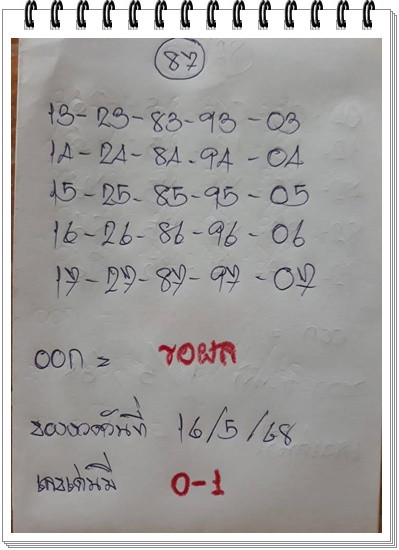 87
13-23-83-93-03
14-24-84-94-04
15-25-85-95-05
16-26-86-96-06
17-27-87-97-07
ออก = ขอผล
ของงวดวันที่ 16/5/68
เลขเด่นมี 0-1